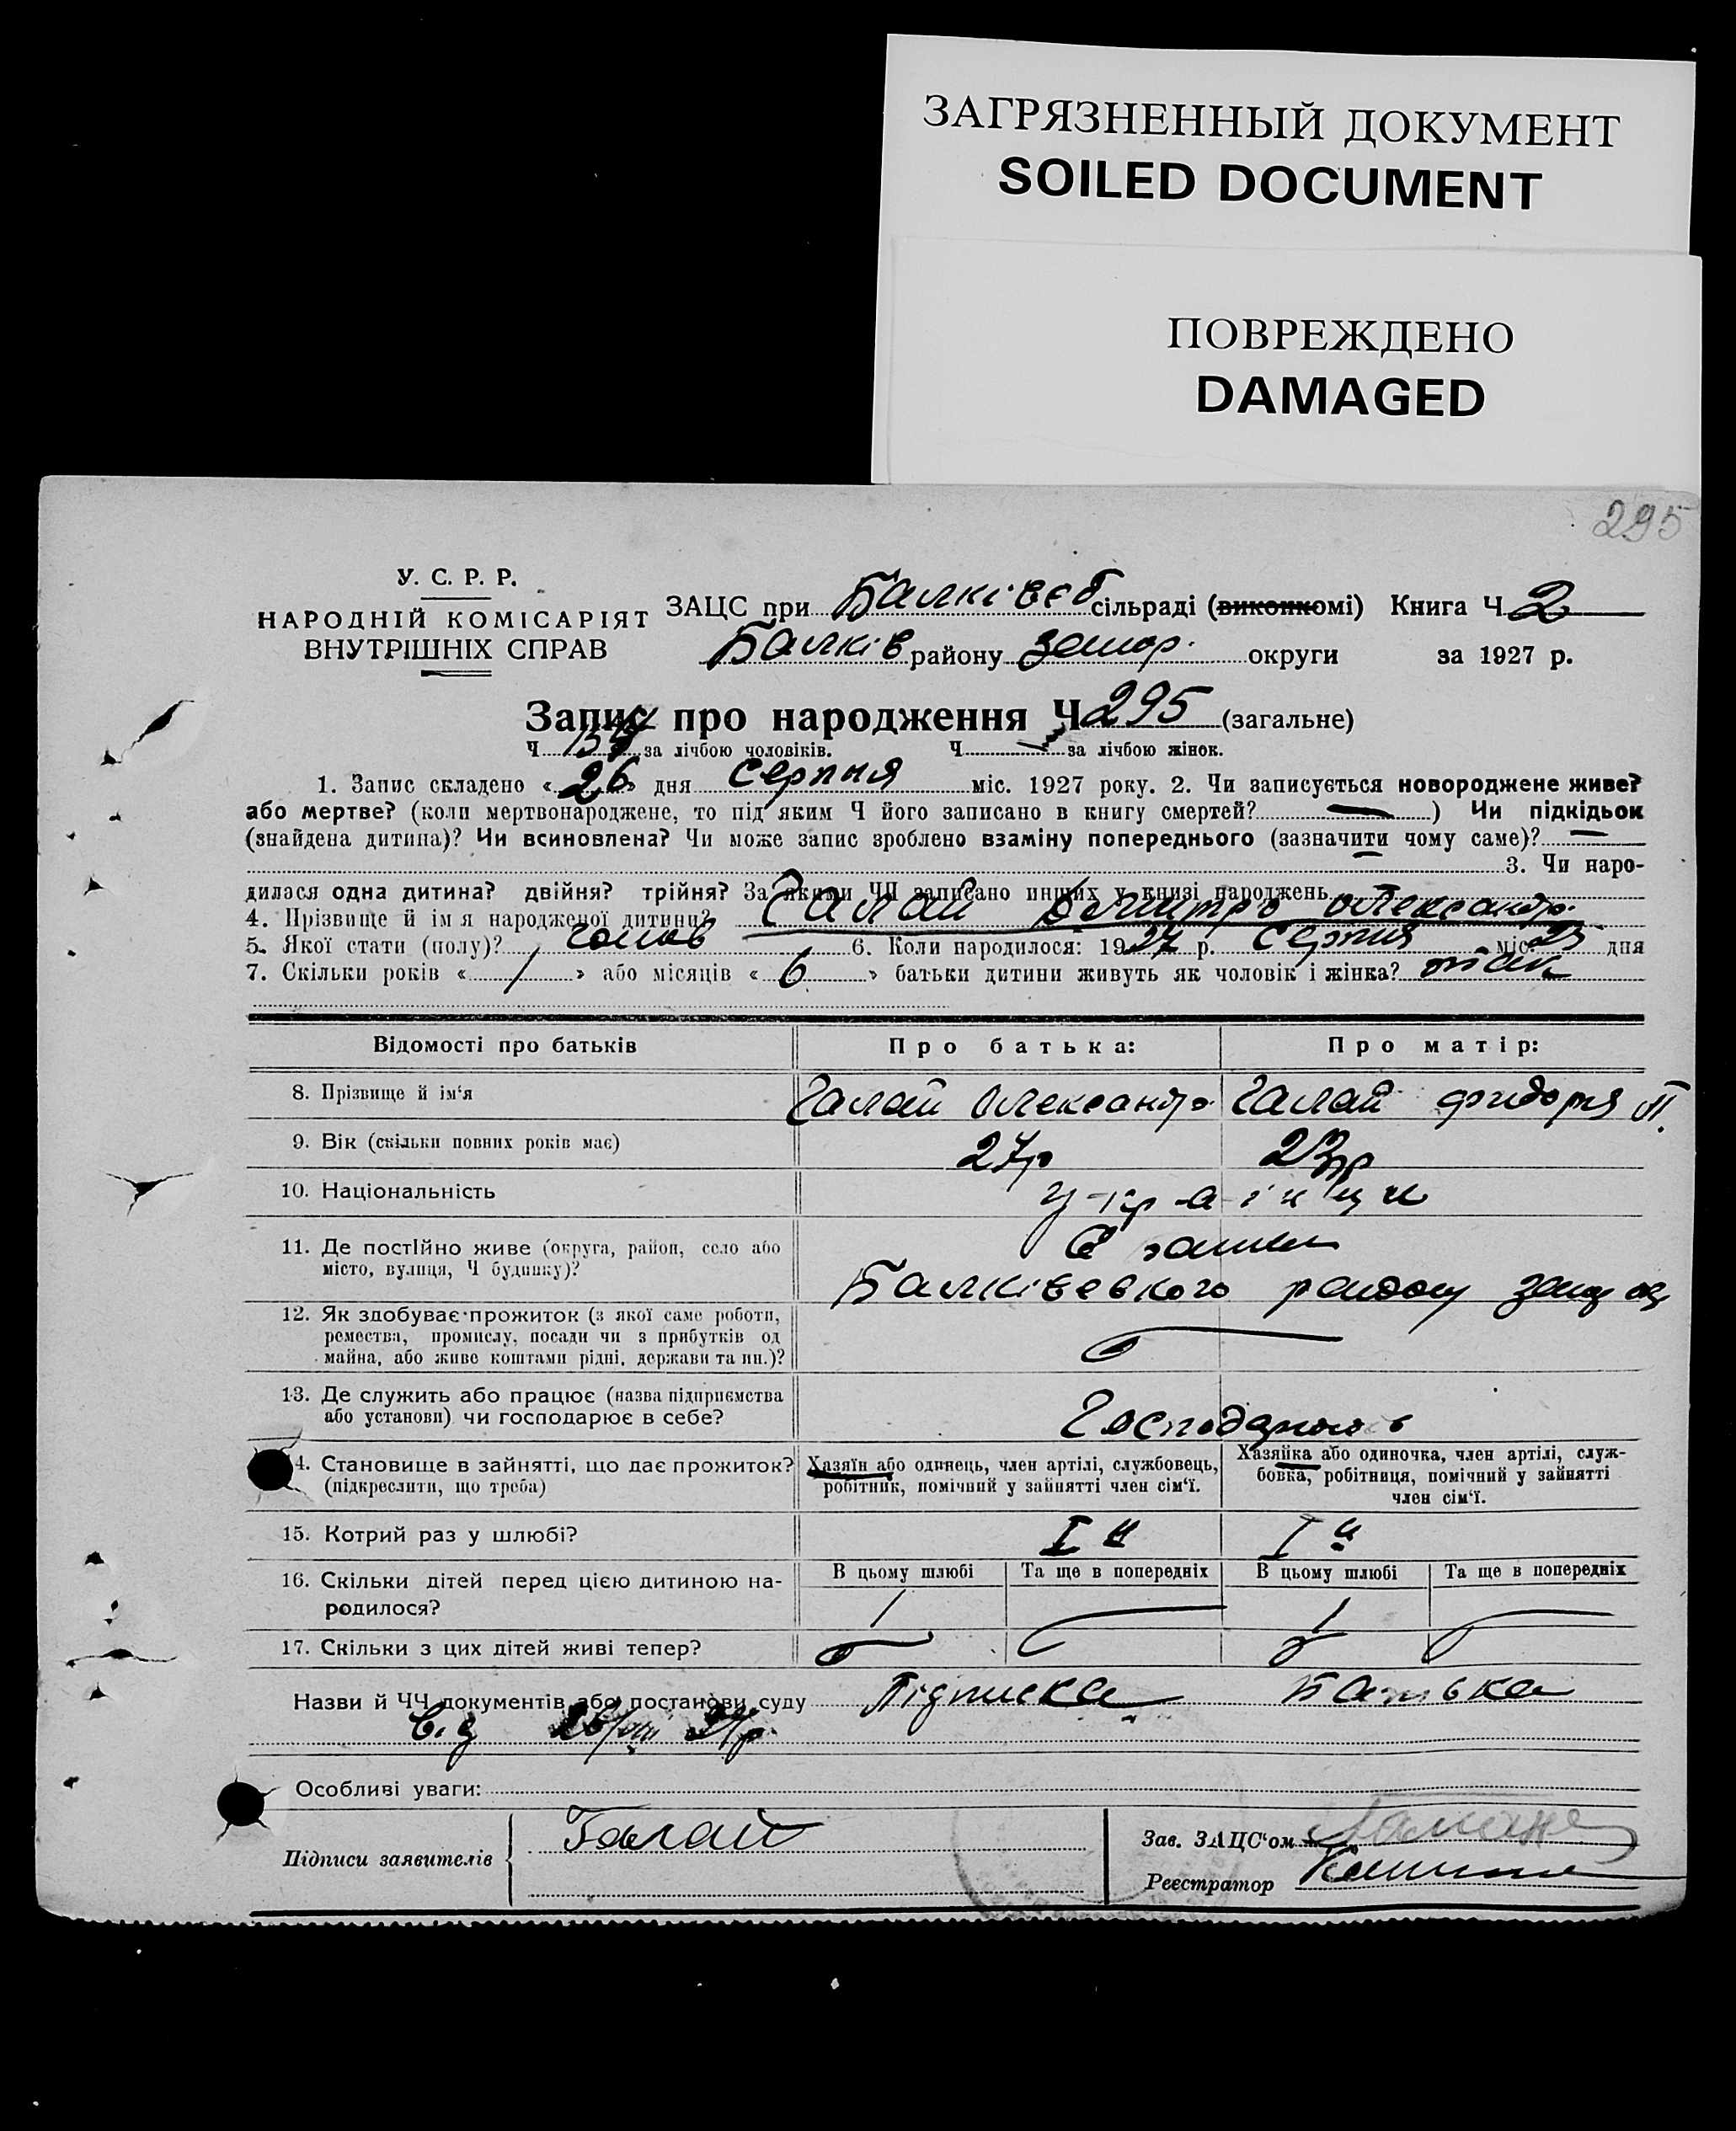 ЗАГРЯЗНЕННЫЙ ДОКУМЕНТ
SOILED DOCUMENT
ПОВРЕЖДЕНО
DAMAGED
295
У. С. Р. Р.
НАРОДНІЙ КОМІСАРІЯТ
ВНУТРІШНІХ СПРАВ
ЗАЦС при Балківсб сільраді (виконкомі) Книга Ч 2
Балків району Запор. округи за 1927 р.
Запис про народження Ч 295 (загальне)
Ч. за лічбою чоловіків. Ч. за лічбою жінок.
1. Запис складено « 26 » дня Серпня міс. 1927 року. 2. Чи записується новороджене живе?
або мертве? (коли мертвонароджене, то під яким Ч його записано в книгу смертей? — ) Чи підкідьок
(знайдена дитина)? Чи всиновлена? Чи може запис зроблено взаміну попереднього (зазначити чому саме)? —
3. Чи наро-
дилася одна дитина? двійня? трійня? За якими ЧЧ записано инших у книзі народжень
4. Прізвище й ім'я народженої дитини? Галай Дмитро Олександр.
5. Якої стати (полу)? чолов 6. Коли народилося: 1927 р. Серпня міс. 23 дня
7. Скільки років « 1 » або місяців « 6 » батьки дитини живуть як чоловік і жінка? так
Відомості про батьків
Про батька:
Про матір:
8. Прізвище й ім'я Галай Олександр. Галай Фидора П.
9. Вік (скільки повних років має) 27р 23р
10. Національність українци
11. Де постійно живе (округа, район, село або
місто, вулиця, Ч будинку)?
Балківського району Запор ок
12. Як здобуває прожиток (з якої саме роботи,
ремества, промислу, посади чи з прибутків од
майна, або живе коштами рідні, держави та ин.)?
13. Де служить або працює (назва підприємства
або установи) чи господарює в себе?
Господарюють
4. Становище в зайнятті, що дає прожиток?
(підкреслити, що треба)
Хазяїн або одинець, член артілі, службовець,
робітник, помічний у зайнятті член сім'ї.
Хазяйка або одиночка, член артілі, служ-
бовка, робітниця, помічний у зайнятті
член сім'ї.
15. Котрий раз у шлюбі? I й I й
16. Скільки дітей перед цією дитиною на-
родилося?
В цьому шлюбі Та ще в попередніх В цьому шлюбі Та ще в попередніх
1 — 1 —
17. Скільки з цих дітей живі тепер?
Назви й ЧЧ документів або постанови суду Підписка Батька
Від 26/VIII 27р.
Особливі уваги:
Підписи заявителів Галай
Зав. ЗАЦС'ом
Реєстратор